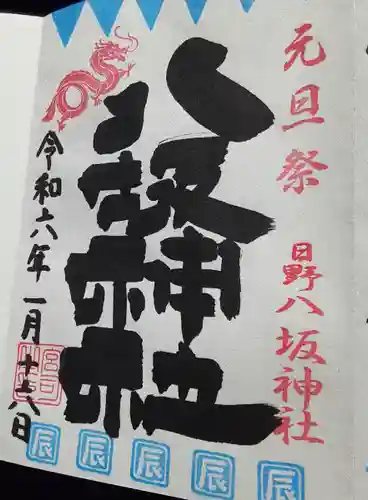 元旦祭
日野八坂神社
八坂神社
令和六年一月十八日
辰 辰 辰 辰 辰